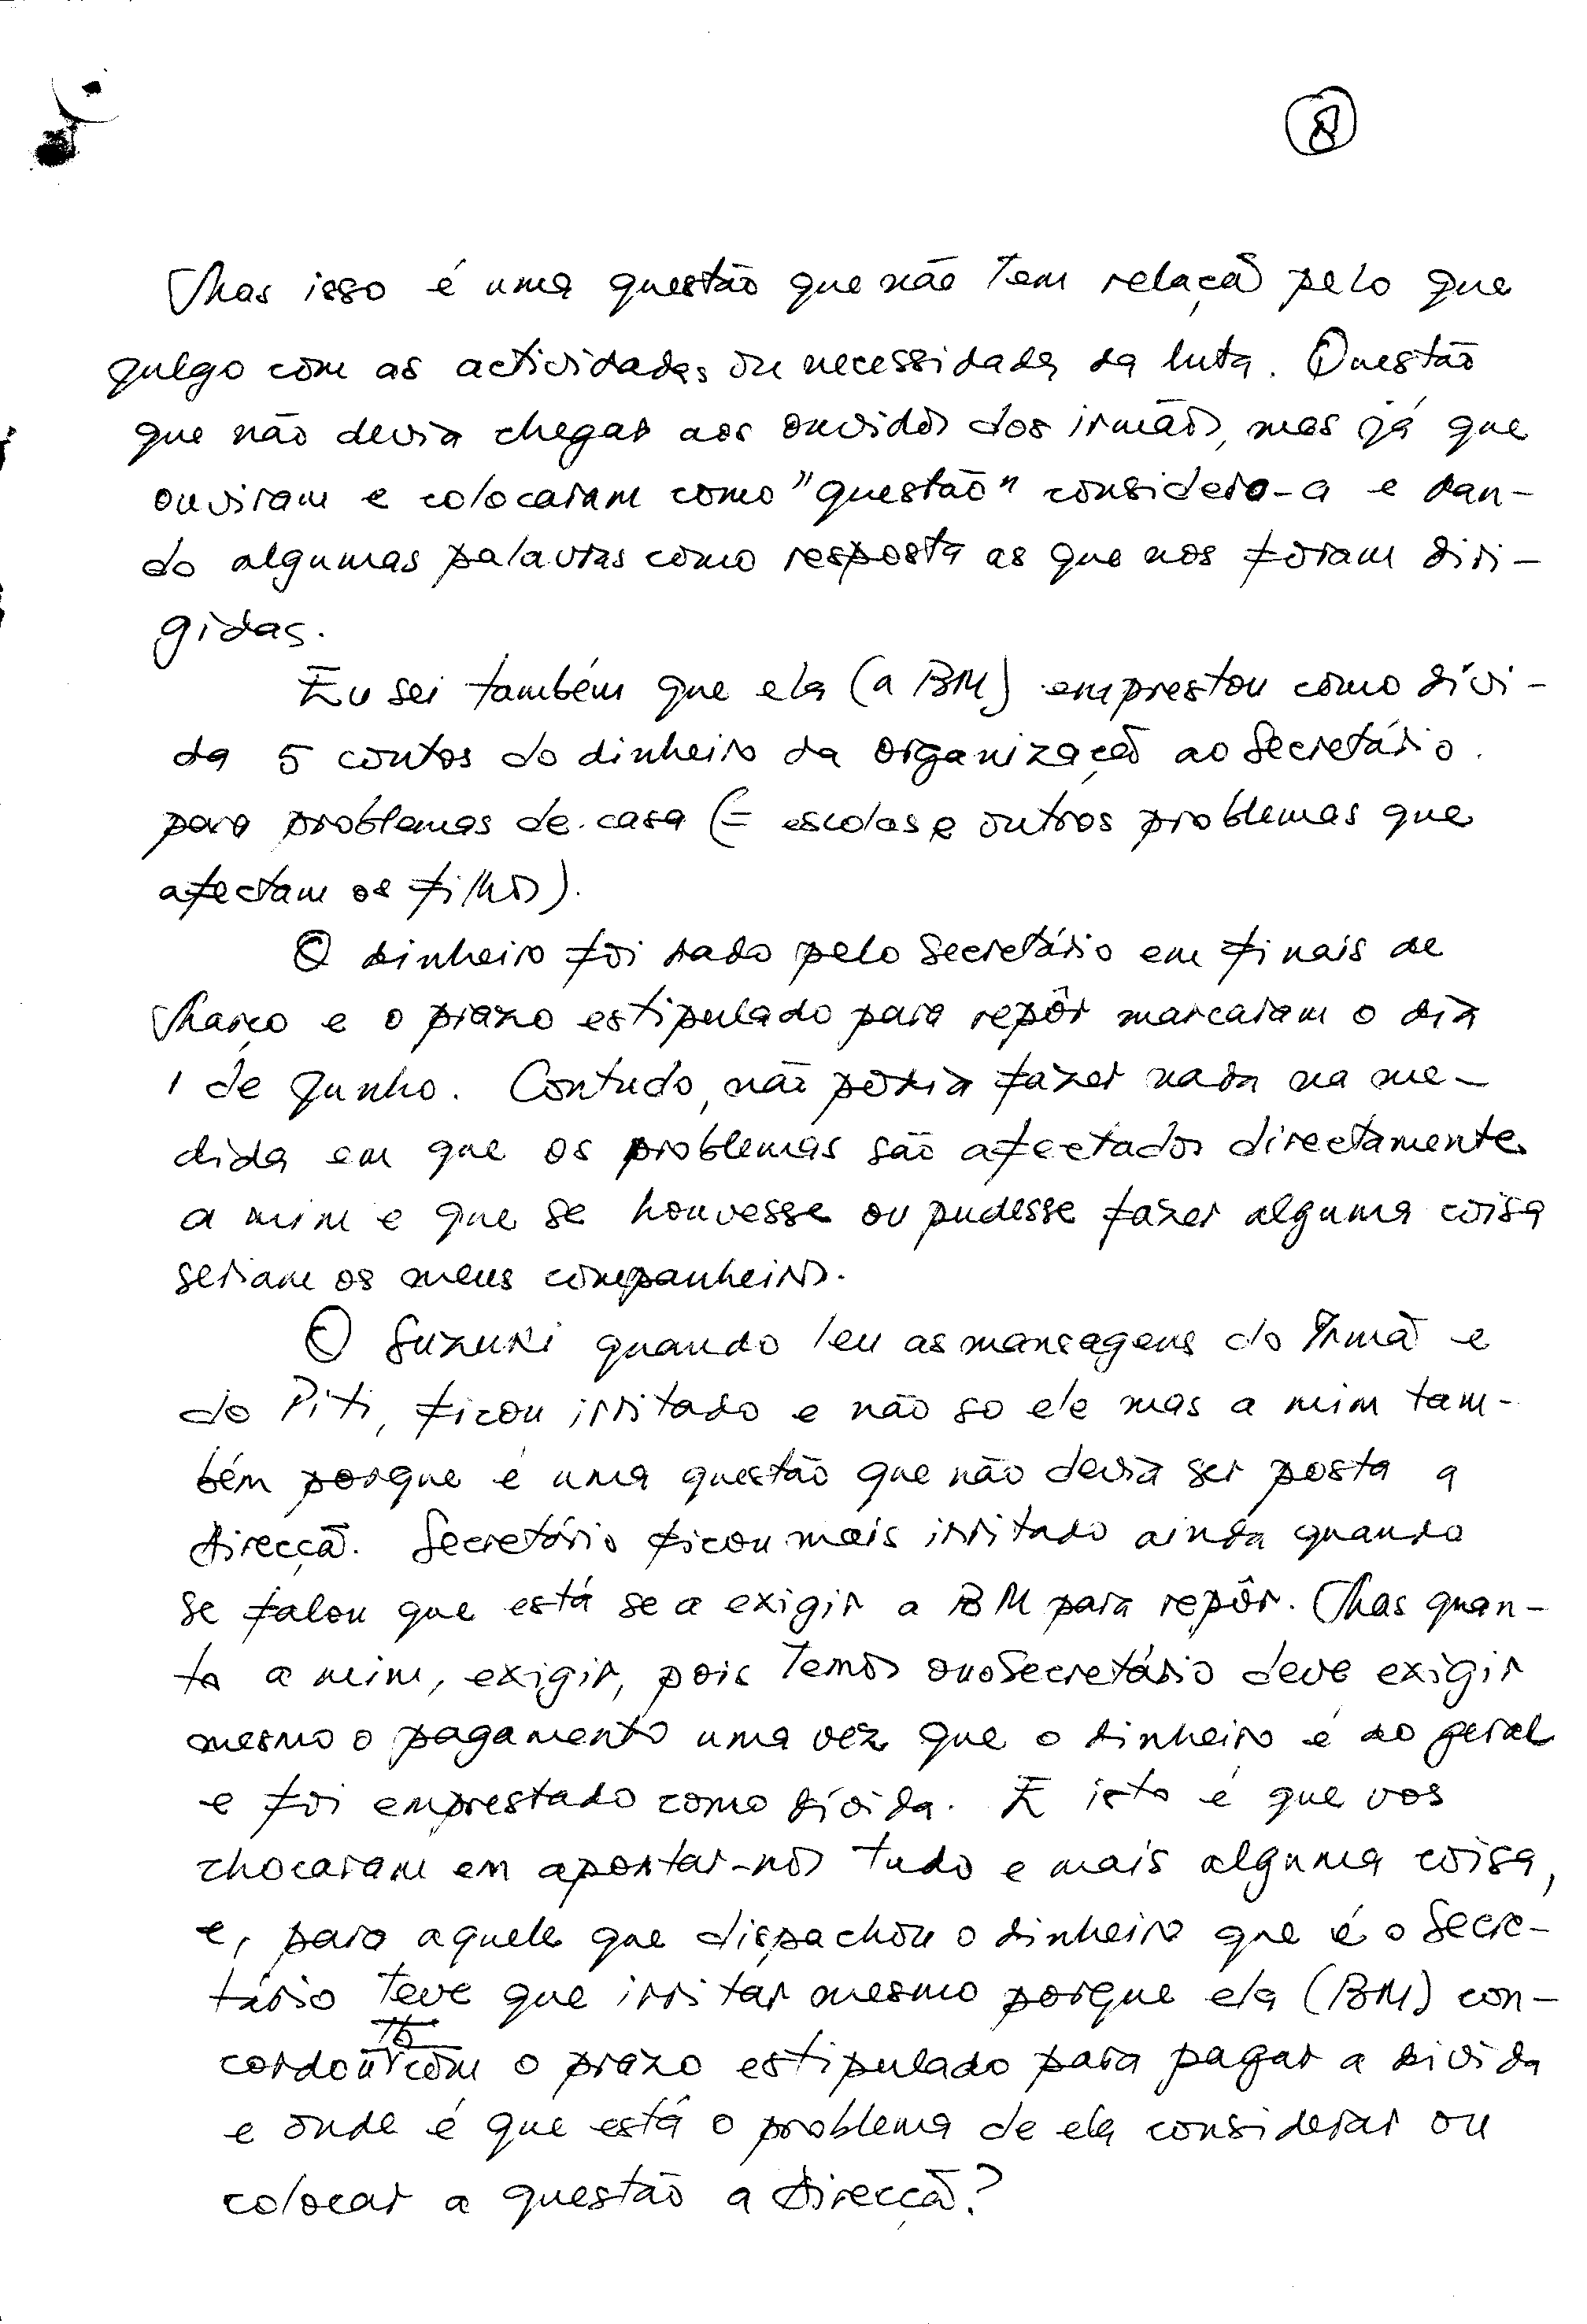 8
Mas isso é uma questão que não tem relaçã pelo que
julgo com as actividades ou necessidades da luta. Questão
que não devia chegar aos ouvidos dos irmãos, mas já que
ouviram e colocaram como "questão" considero-a e dan-
do algumas palavras como resposta as que nos foram diri-
gidas.
Eu sei também que ela (a BM) emprestou como dívi-
da 5 contos do dinheiro da organizaçã ao Secretário.
para problemas de casa (= escolas e outros problemas que
afectam os filhos).
O dinheiro foi dado pelo Secretário em finais de
Março e o prazo estipulado para repôr marcaram o dia
1 de Junho. Contudo, não podia fazer nada na me-
dida em que os problemas são afectados directamente
a mim e que se houvesse ou pudesse fazer alguma coisa
seriam os meus companheiros.
O Suzuki quando leu as mensagens do Irmã e
do Piti, ficou irritado e não so ele mas a mim tam-
bém porque é uma questão que não devia ser posta a
direcçã. Secretário ficou mais irritado ainda quando
se falou que está se a exigir a BM para repôr. Mas quan-
to a mim, exigir, pois temos ou o Secretário deve exigir
mesmo o pagamento uma vez que o dinheiro é do geral
e foi emprestado como dívida. E isto é que vos
chocaram em apontar-nos tudo e mais alguma coisa,
e, para aquele que dispachou o dinheiro que é o Secre-
tário teve que irritar mesmo porque ela (BM) con-
cordou tb com o prazo estipulado para pagar a divida
e onde é que está o problema de ela considerar ou
colocar a questão a direcçã?